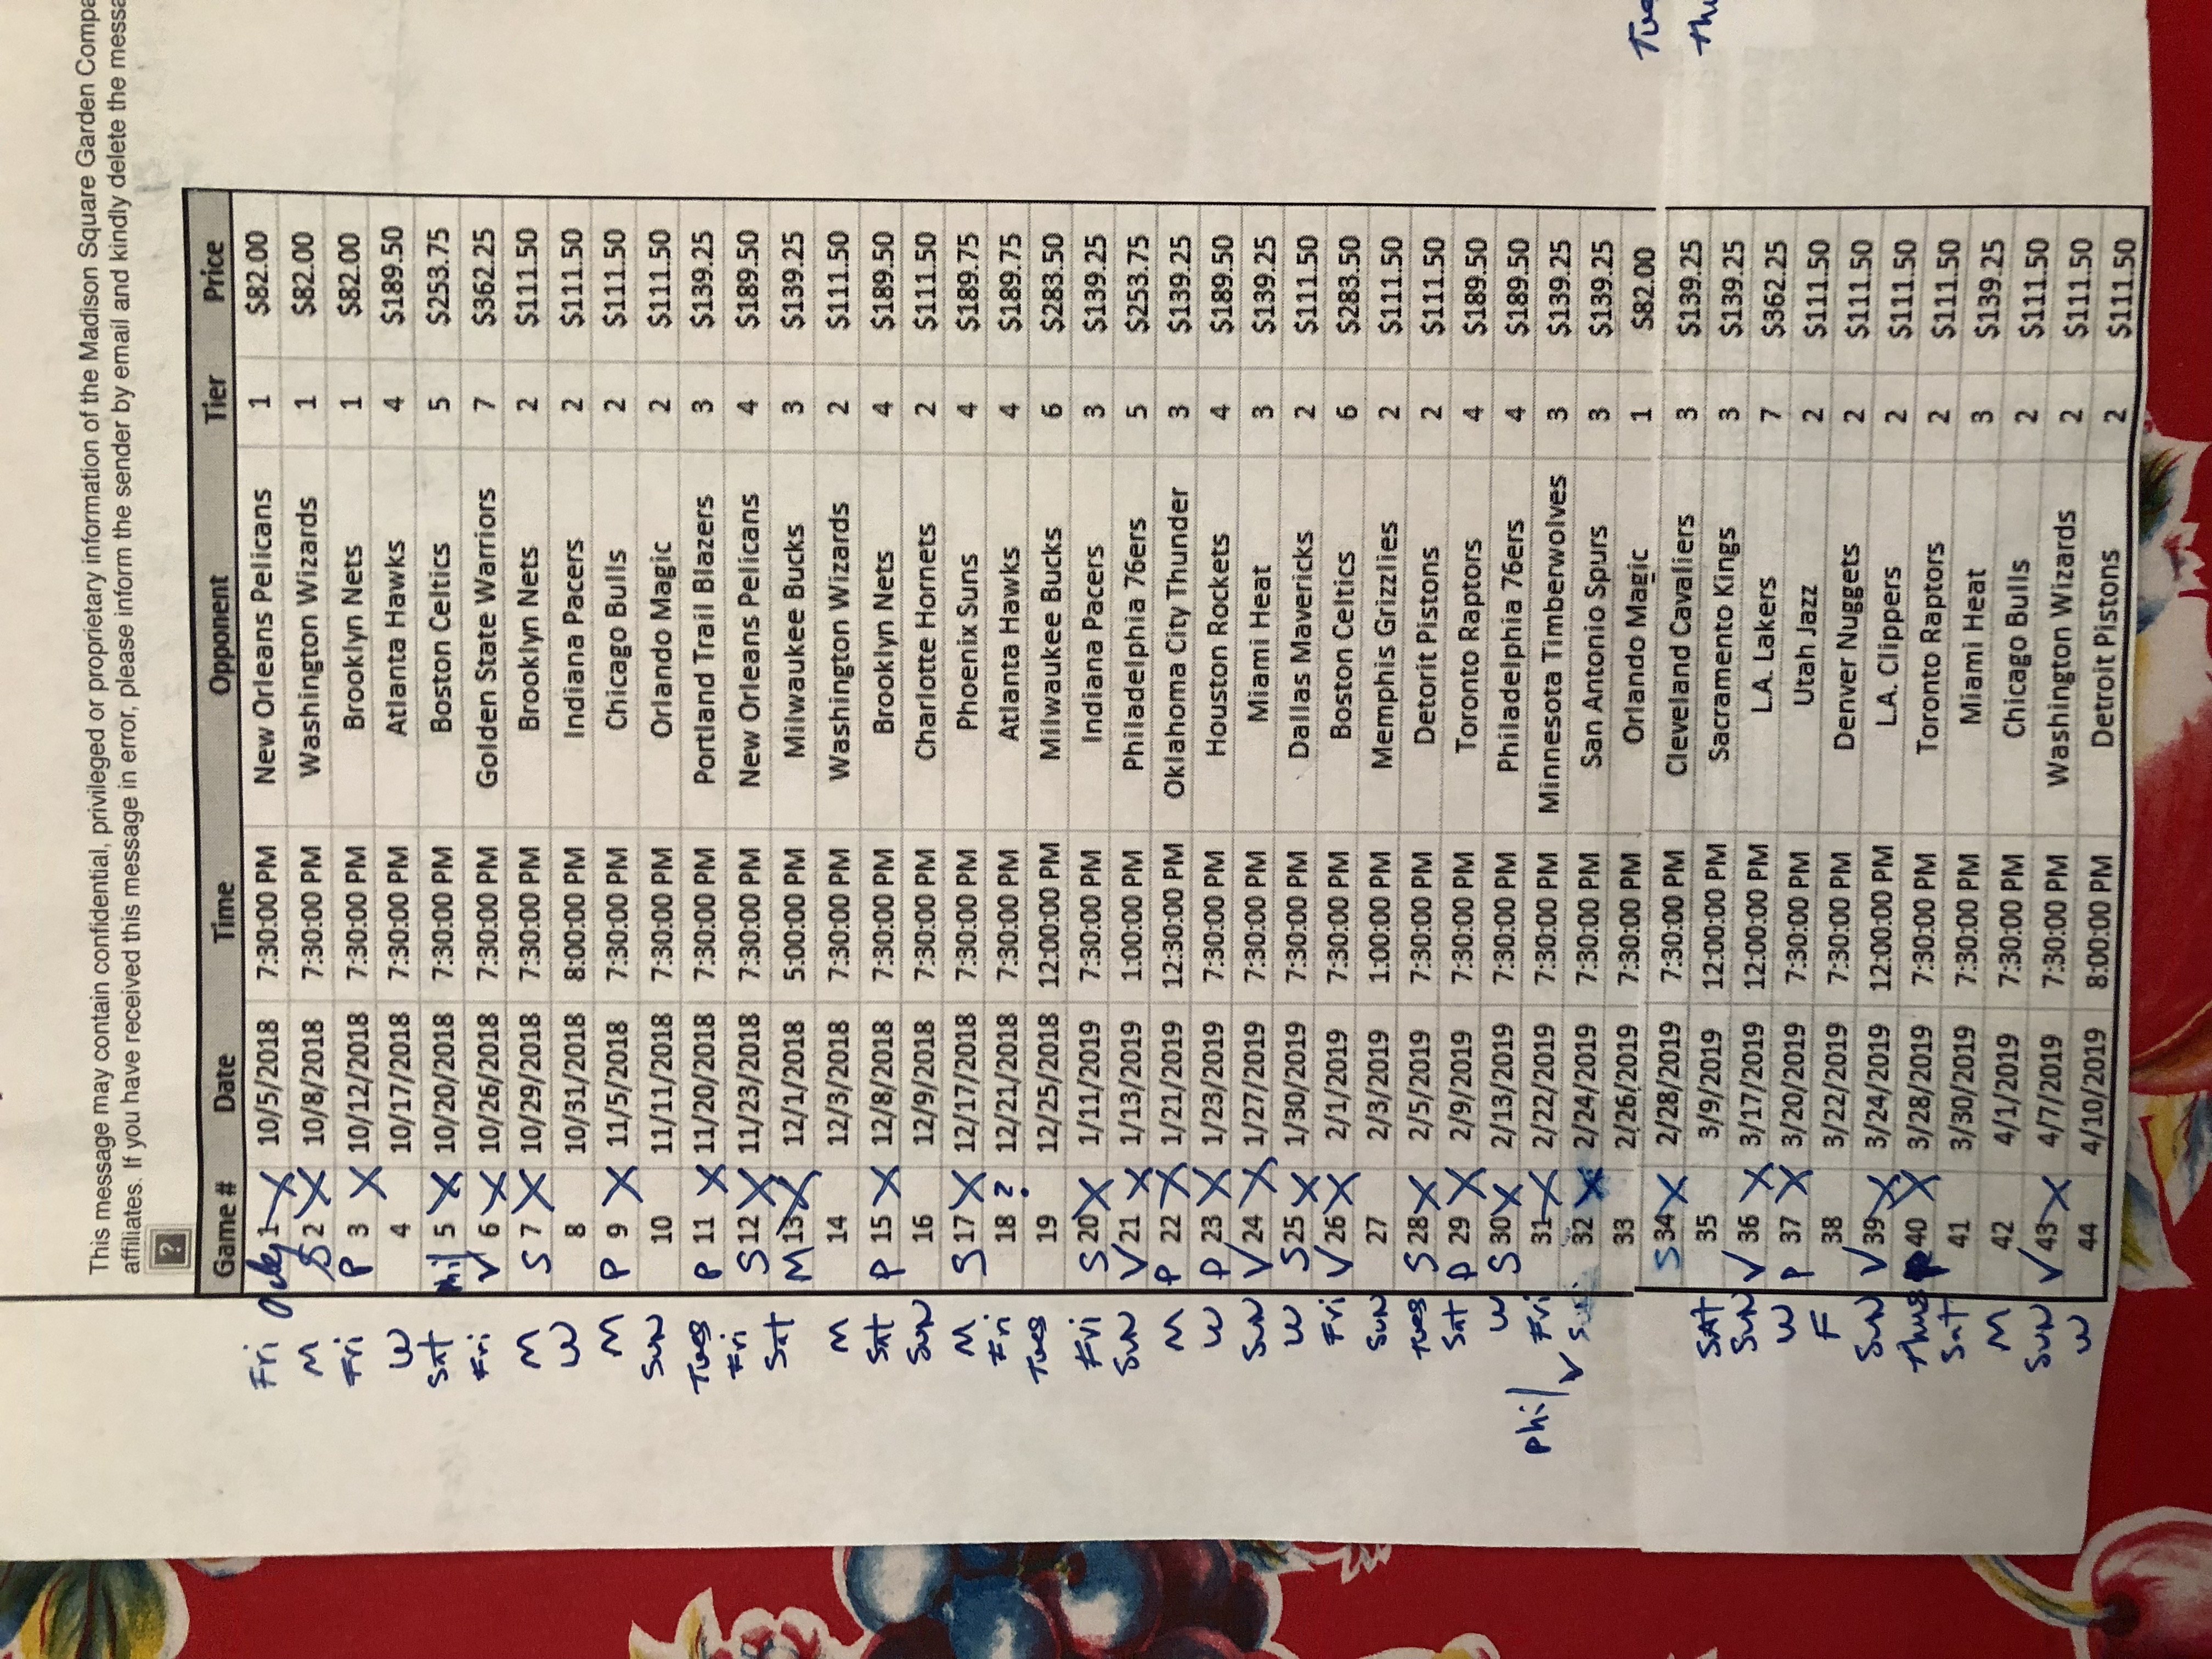 This message may contain confidential, privileged or proprietary information of the Madison Square Garden Compa
affiliates. If you have received this message in error, please inform the sender by email and kindly delete the messa
?
Game # Date Time Opponent Tier Price
Fri 1 X 10/5/2018 7:30:00 PM New Orleans Pelicans 1 $82.00
M S 2 X 10/8/2018 7:30:00 PM Washington Wizards 1 $82.00
Fri P 3 X 10/12/2018 7:30:00 PM Brooklyn Nets 1 $82.00
W 4 10/17/2018 7:30:00 PM Atlanta Hawks 4 $189.50
SAt Phil 5 X 10/20/2018 7:30:00 PM Boston Celtics 5 $253.75
Fri V 6 X 10/26/2018 7:30:00 PM Golden State Warriors 7 $362.25
M S 7 X 10/29/2018 7:30:00 PM Brooklyn Nets 2 $111.50
W 8 10/31/2018 8:00:00 PM Indiana Pacers 2 $111.50
M P 9 X 11/5/2018 7:30:00 PM Chicago Bulls 2 $111.50
SUN 10 11/11/2018 7:30:00 PM Orlando Magic 2 $111.50
Tues P 11 X 11/20/2018 7:30:00 PM Portland Trail Blazers 3 $139.25
Fri S 12 X 11/23/2018 7:30:00 PM New Orleans Pelicans 4 $189.50
SAt M 13 X 12/1/2018 5:00:00 PM Milwaukee Bucks 3 $139.25
M 14 12/3/2018 7:30:00 PM Washington Wizards 2 $111.50
SAt P 15 X 12/8/2018 7:30:00 PM Brooklyn Nets 4 $189.50
SUN 16 12/9/2018 7:30:00 PM Charlotte Hornets 2 $111.50
M S 17 X 12/17/2018 7:30:00 PM Phoenix Suns 4 $189.75
Fri 18 ? 12/21/2018 7:30:00 PM Atlanta Hawks 4 $189.75
Tues 19 12/25/2018 12:00:00 PM Milwaukee Bucks 6 $283.50
Fri S 20 X 1/11/2019 7:30:00 PM Indiana Pacers 3 $139.25
SUN V 21 X 1/13/2019 1:00:00 PM Philadelphia 76ers 5 $253.75
M P 22 X 1/21/2019 12:30:00 PM Oklahoma City Thunder 3 $139.25
W P 23 X 1/23/2019 7:30:00 PM Houston Rockets 4 $189.50
SUN V 24 X 1/27/2019 7:30:00 PM Miami Heat 3 $139.25
W S 25 X 1/30/2019 7:30:00 PM Dallas Mavericks 2 $111.50
Fri V 26 X 2/1/2019 7:30:00 PM Boston Celtics 6 $283.50
SUN 27 2/3/2019 1:00:00 PM Memphis Grizzlies 2 $111.50
Tues S 28 X 2/5/2019 7:30:00 PM Detorit Pistons 2 $111.50
SAt P 29 X 2/9/2019 7:30:00 PM Toronto Raptors 4 $189.50
W S 30 X 2/13/2019 7:30:00 PM Philadelphia 76ers 4 $189.50
Phil Fri 31 X 2/22/2019 7:30:00 PM Minnesota Timberwolves 3 $139.25
V 32 X 2/24/2019 7:30:00 PM San Antonio Spurs 3 $139.25
33 2/26/2019 7:30:00 PM Orlando Magic 1 $82.00
S 34 X 2/28/2019 7:30:00 PM Cleveland Cavaliers 3 $139.25
SAT 35 3/9/2019 12:00:00 PM Sacramento Kings 3 $139.25
SUN V 36 X 3/17/2019 12:00:00 PM L.A. Lakers 7 $362.25
W P 37 X 3/20/2019 7:30:00 PM Utah Jazz 2 $111.50
F 38 3/22/2019 7:30:00 PM Denver Nuggets 2 $111.50
SUN V 39 X 3/24/2019 12:00:00 PM L.A. Clippers 2 $111.50
Thurs P 40 X 3/28/2019 7:30:00 PM Toronto Raptors 2 $111.50
SAt 41 3/30/2019 7:30:00 PM Miami Heat 3 $139.25
M 42 4/1/2019 7:30:00 PM Chicago Bulls 2 $111.50
SUN V 43 X 4/7/2019 7:30:00 PM Washington Wizards 2 $111.50
W 44 4/10/2019 8:00:00 PM Detroit Pistons 2 $111.50
Tue
Thu